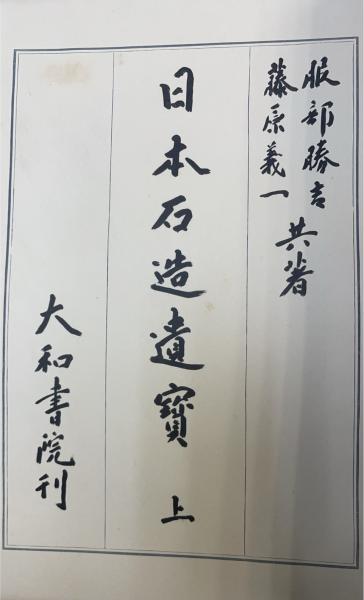 服部勝吉
藤原義一
共著
日本石造遺寳 上
大和書院刊